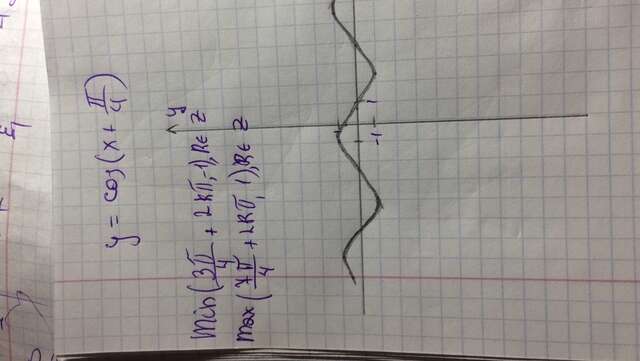 y = cos(x + π/4)
min(3π/4 + 2kπ, -1), k∈Z
max(7π/4 + 2kπ, 1), k∈Z
y
1
-1